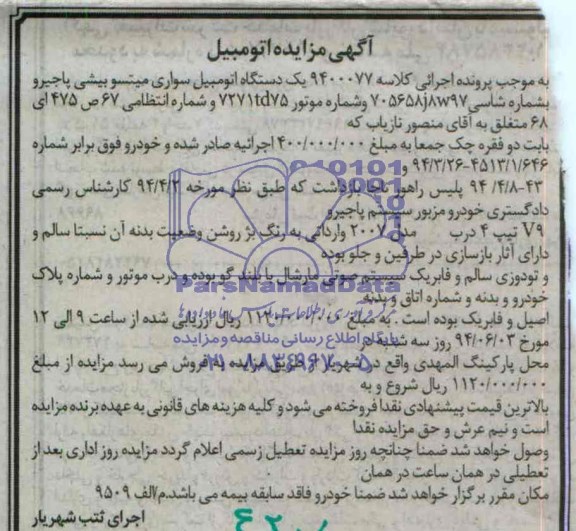 آگهی مزایده اتومبیل
به موجب پرونده اجرائی کلاسه ۹۴۰۰۰۷۷ یک دستگاه اتومبیل سواری میتسو بیشی پاجیرو
بشماره شاسی ۷۰۵۶۵۸j۸w۹۷ وشماره موتور ۷۲۷۱td۷۵ و شماره انتظامی ۶۷ ص ۴۷۵ ای
۶۸ متغلق به آقای منصور تازیاب که
بابت دو فقره چک جمعا به مبلغ ۴۰۰/۰۰۰/۰۰۰ اجرائیه صادر شده و خودرو فوق برابر شماره
۹۴/۳/۲۶-۴۵۱۳/۱/۶۴۶ و
۹۴/۴/۸-۴۳ پلیس راهور ناجا بازداشت که طبق نظر مورخه ۹۴/۴/۲ کارشناس رسمی
دادگستری خودرو مزبور سیستم پاجیرو
V۹ تیپ ۴ درب مدل ۲۰۰۷ وارداتی به رنگ بژ روشن وضعیت بدنه آن نسبتا سالم و
دارای آثار بازسازی در طرفین و جلو بوده
و تودوزی سالم و فابریک سیستم صوتی مارشال با بلند گو بوده و درب موتور و شماره پلاک
خودرو و بدنه و شماره اتاق و بدنه
اصیل و فابریک بوده است . به مبلغ ریال ارزیابی شده از ساعت ۹ الی ۱۲
مورخ ۹۴/۰۶/۰۳ روز سه شنبه در
محل پارکینگ المهدی واقع در شهریار از طریق مزایده به فروش می رسد مزایده از مبلغ
۱۱۲۰/۰۰۰/۰۰۰ ریال شروع و به
بالاترین قیمت پیشنهادی نقدا فروخته می شود و کلیه هزینه های قانونی به عهده برنده مزایده
است و نیم عرش و حق مزایده نقدا
وصول خواهد شد ضمنا چنانچه روز مزایده تعطیل رسمی اعلام گردد مزایده روز اداری بعد از
تعطیلی در همان ساعت در همان
مکان مقرر برگزار خواهد شد ضمنا خودرو فاقد سابقه بیمه می باشد.م/الف ۹۵۰۹
اجرای ثتب شهریار
ParsNamadData
پایگاه اطلاع رسانی مناقصه و مزایده
۰۲۱-۸۸۳۴۹۶۷۰-۵